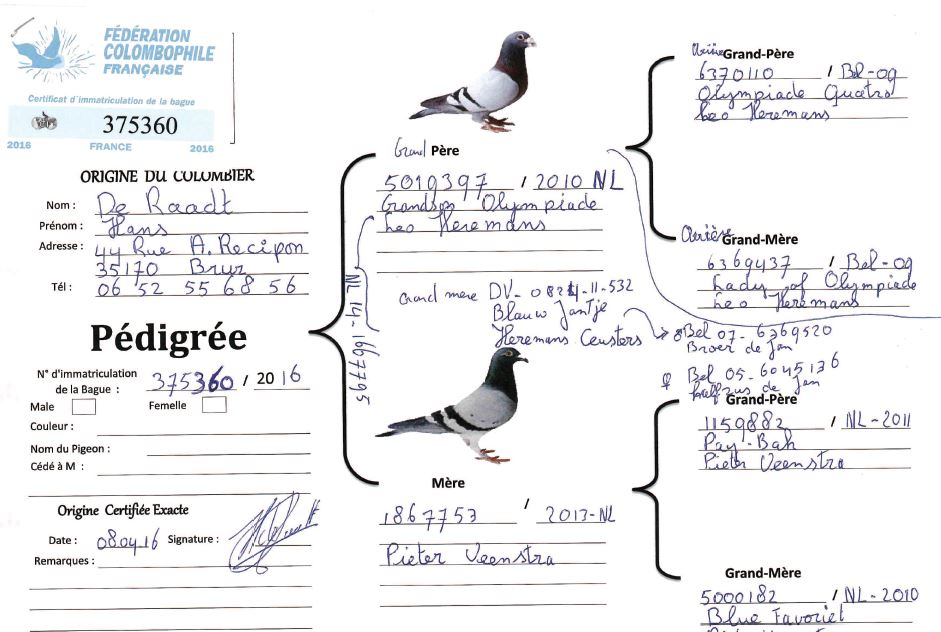 FÉDÉRATION
COLOMBOPHILE
FRANÇAISE
Certificat d'immatriculation de la bague
375360
2016 FRANCE 2016
ORIGINE DU COLOMBIER
Nom : De Raadt
Prénom : Hans
Adresse : 44 Rue A. Recipon
35170 Bruz
Tél : 06 52 55 68 56
Pédigrée
N° d'immatriculation
de la Bague : 375360 / 2016
Male Femelle
Couleur :
Nom du Pigeon :
Cédé à M :
Origine Certifiée Exacte
Date : 08.04.16 Signature :
Remarques :
Grand Père
5019397 / 2010 NL
Grandson Olympiade
Leo Heremans
NL 14-1667795
Grand mere DV- 0824-11-532
Blauw Jantje
Heremans Ceusters
Mère
1867753 / 2013-NL
Pieter Veenstra
Arrière Grand-Père
6370110 / Bel-09
Olympiade Quatro
Leo Heremans
Arrière Grand-Mère
6369437 / Bel-09
Lady of Olympiade
Leo Heremans
Bel 07- 6369520
Broer de Jan
♀ Bel 05-6045136
halfzus de Jan
Grand-Père
1159882 / NL-2011
Pay-Bak
Pieter Veenstra
Grand-Mère
5000182 / NL-2010
Blue Favoriet